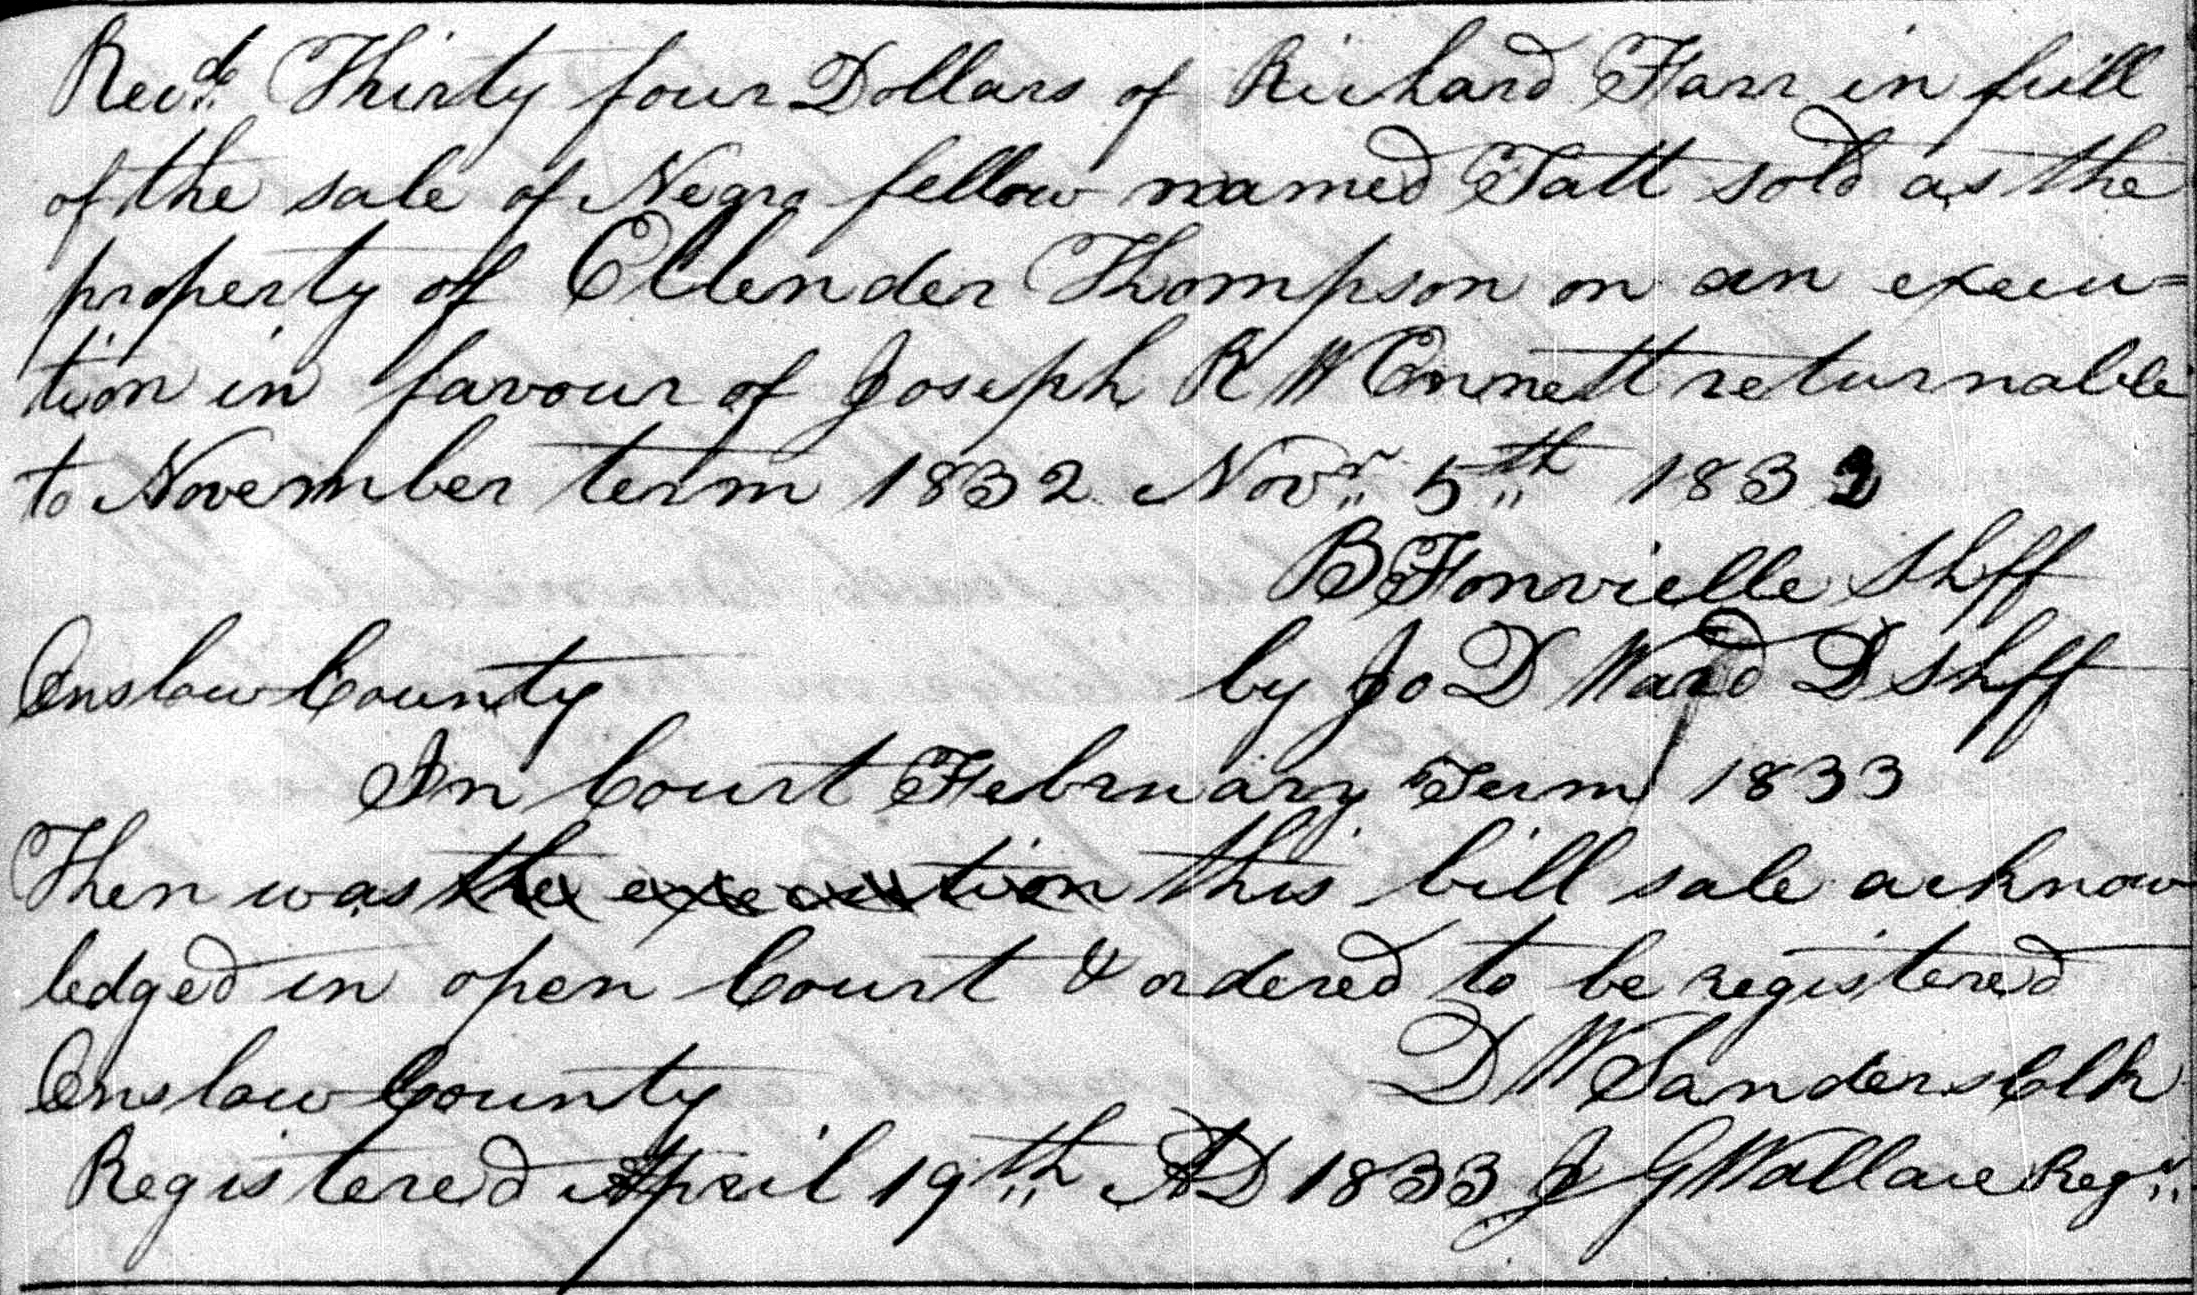 Recd Thirty four Dollars of Richard Farr in full
of the sale of Negro fellow named Tatt sold as the
property of Ellender Thompson on an execu=
tion in favour of Joseph R W Ennett returnable
to November term 1832 Novr 5th 1832
B Fonvielle Shff
Onslow County by Jo D Ward D Shff
In Court February Term 1833
Then was the execution this bill sale acknow
ledged in open Court & ordered to be registered
Onslow County D W Sanders Clk
Registered April 19th AD 1833 J G Wallace Regr